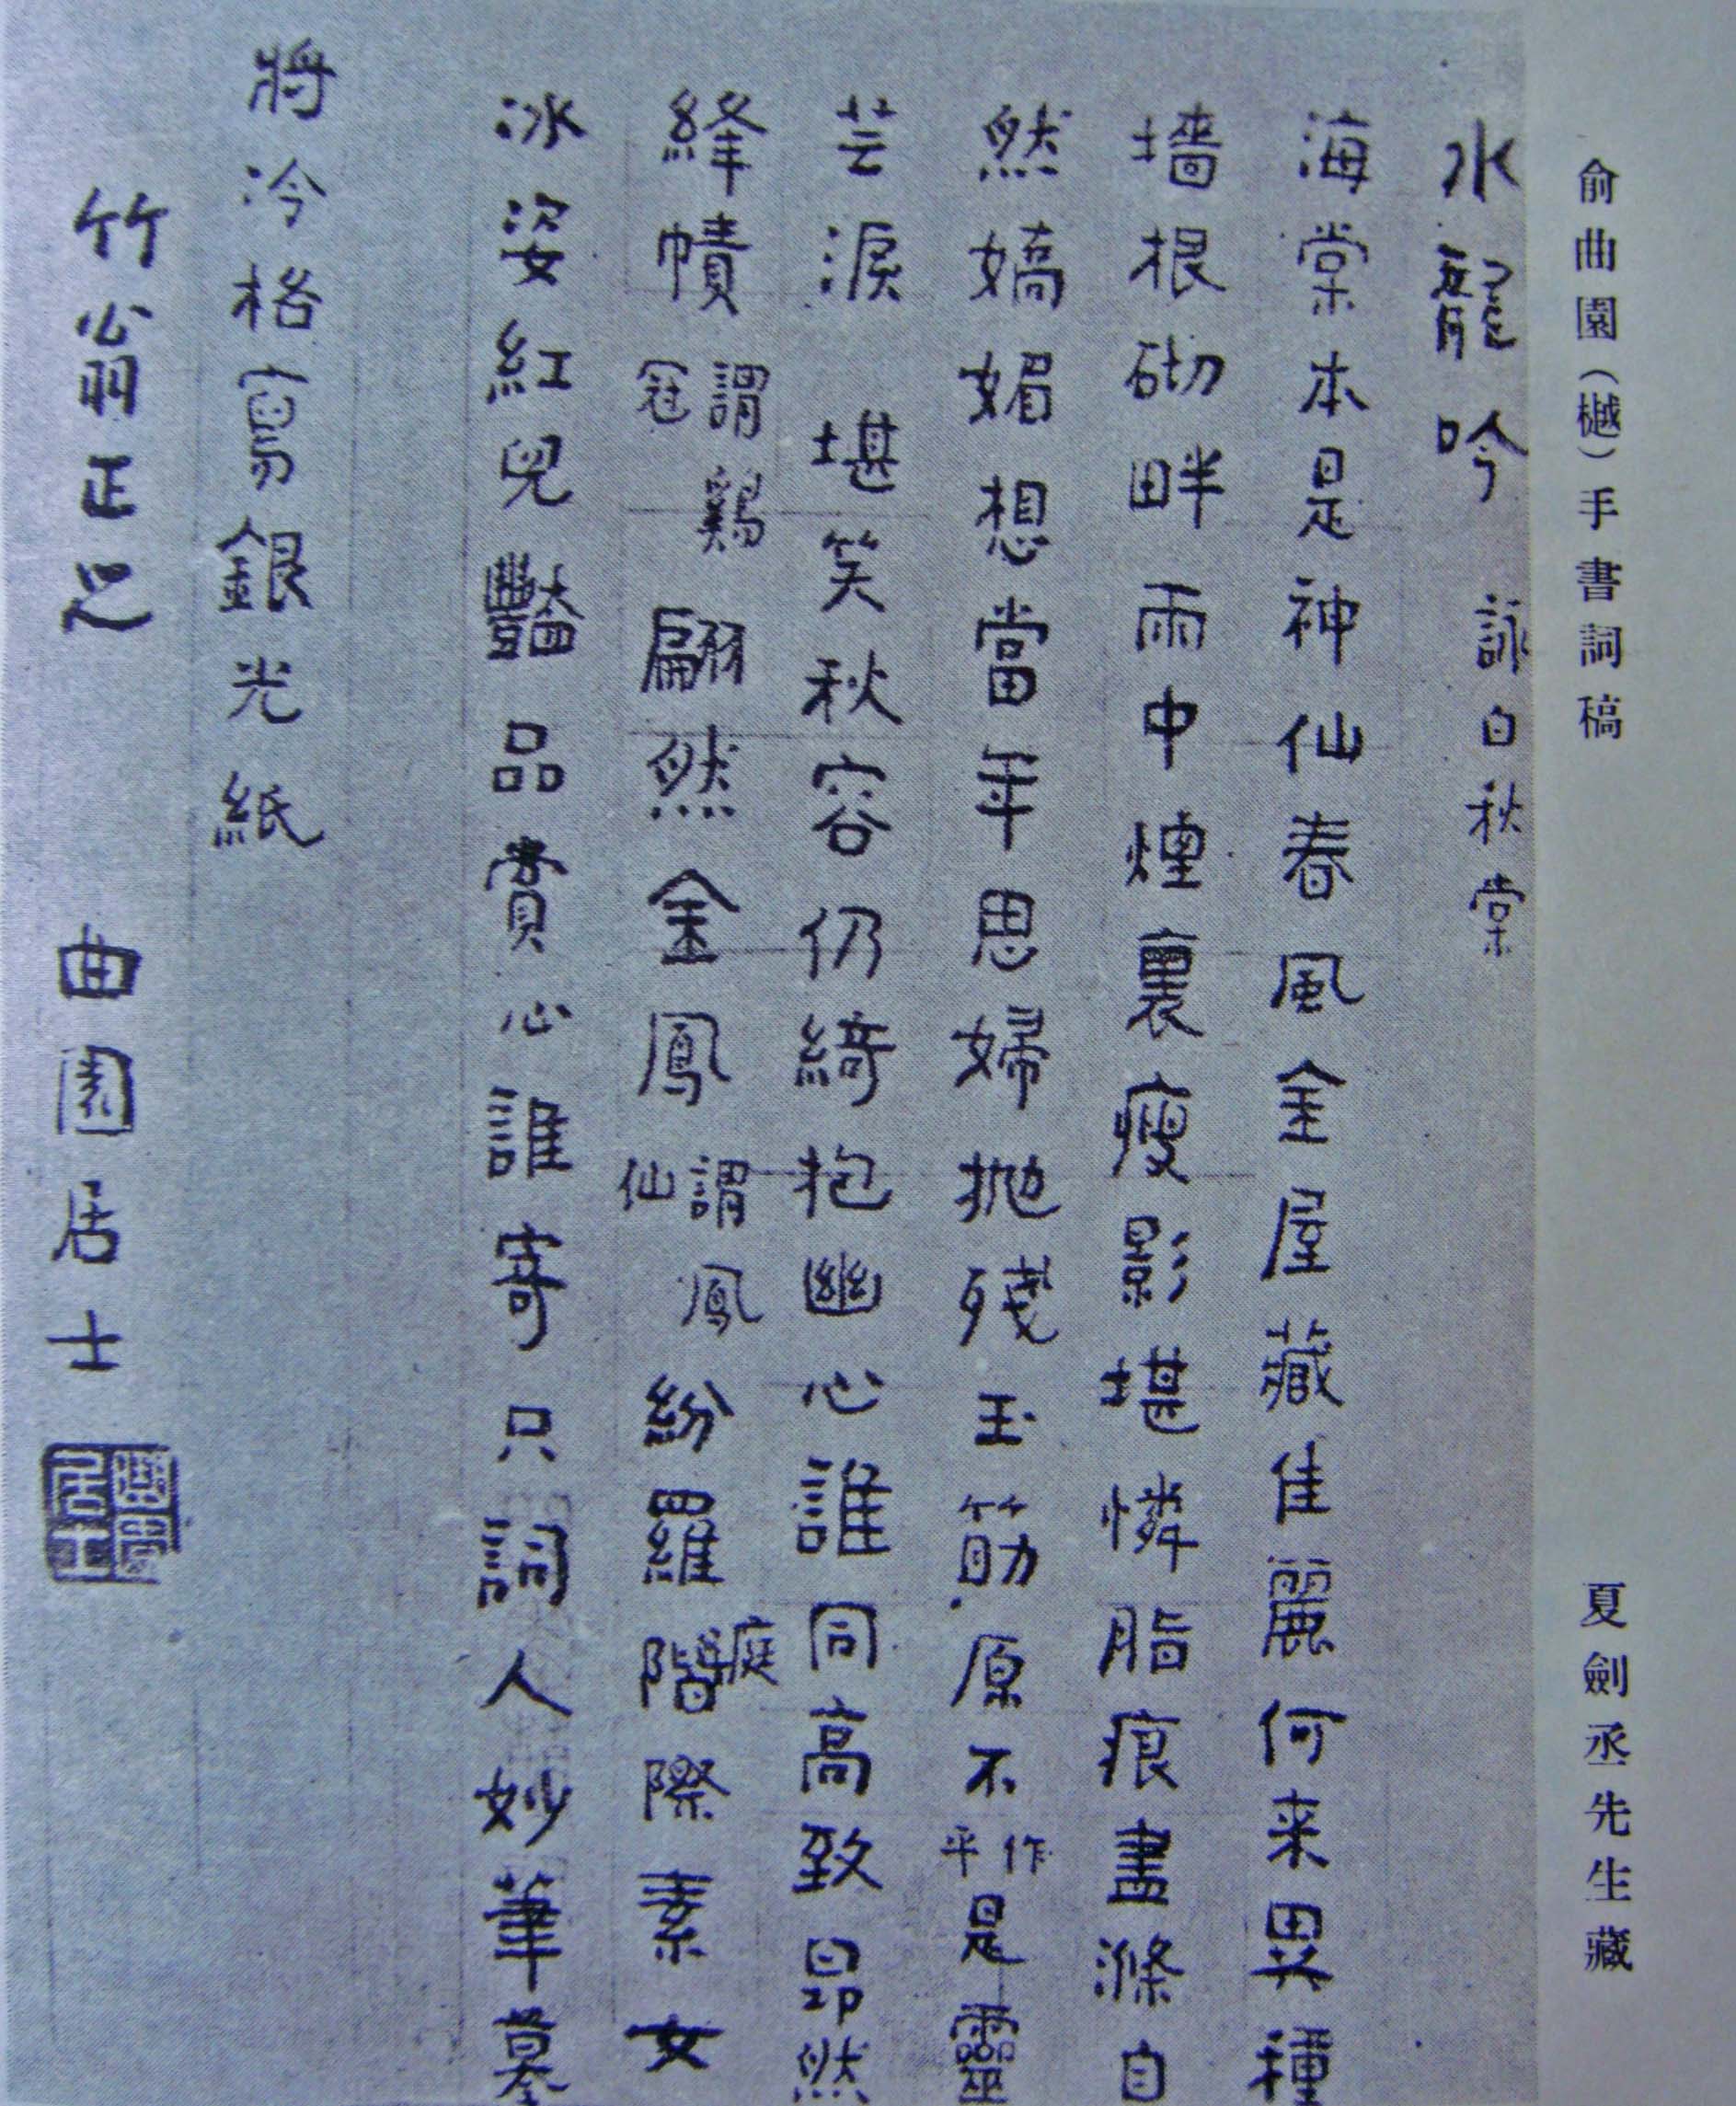 俞曲園（樾）手書詞稿 夏劍丞先生藏
水龍吟 詠白秋棠
海棠本是神仙春風金屋藏佳麗何来異種
墻根砌畔雨中煙裏瘦影堪憐脂痕盡滌自
然嬌媚想當年思婦拋殘玉筯原不作平是靈
芸淚 堪笑秋容仍綺抱幽心誰同高致昂然
絳幘謂鷄冠翩然金鳳謂鳳仙紛羅階庭際素女
冰姿紅兒豔品賞心誰寄只詞人妙筆摹
將冷格寫銀光紙
竹翁正之 曲園居士
曲園居士